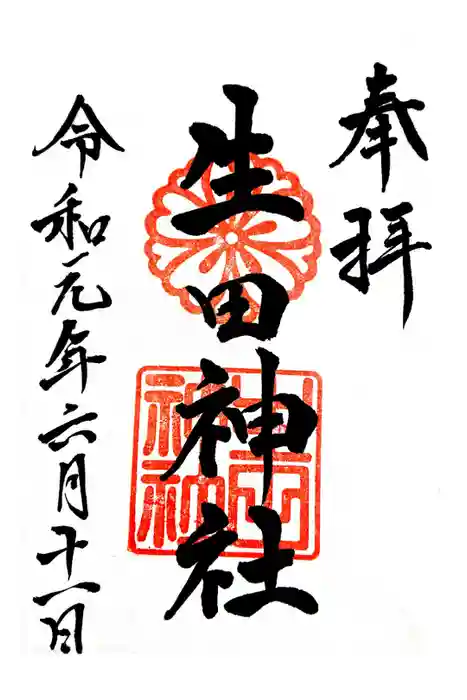 奉拝
生田神社
令和元年六月十一日